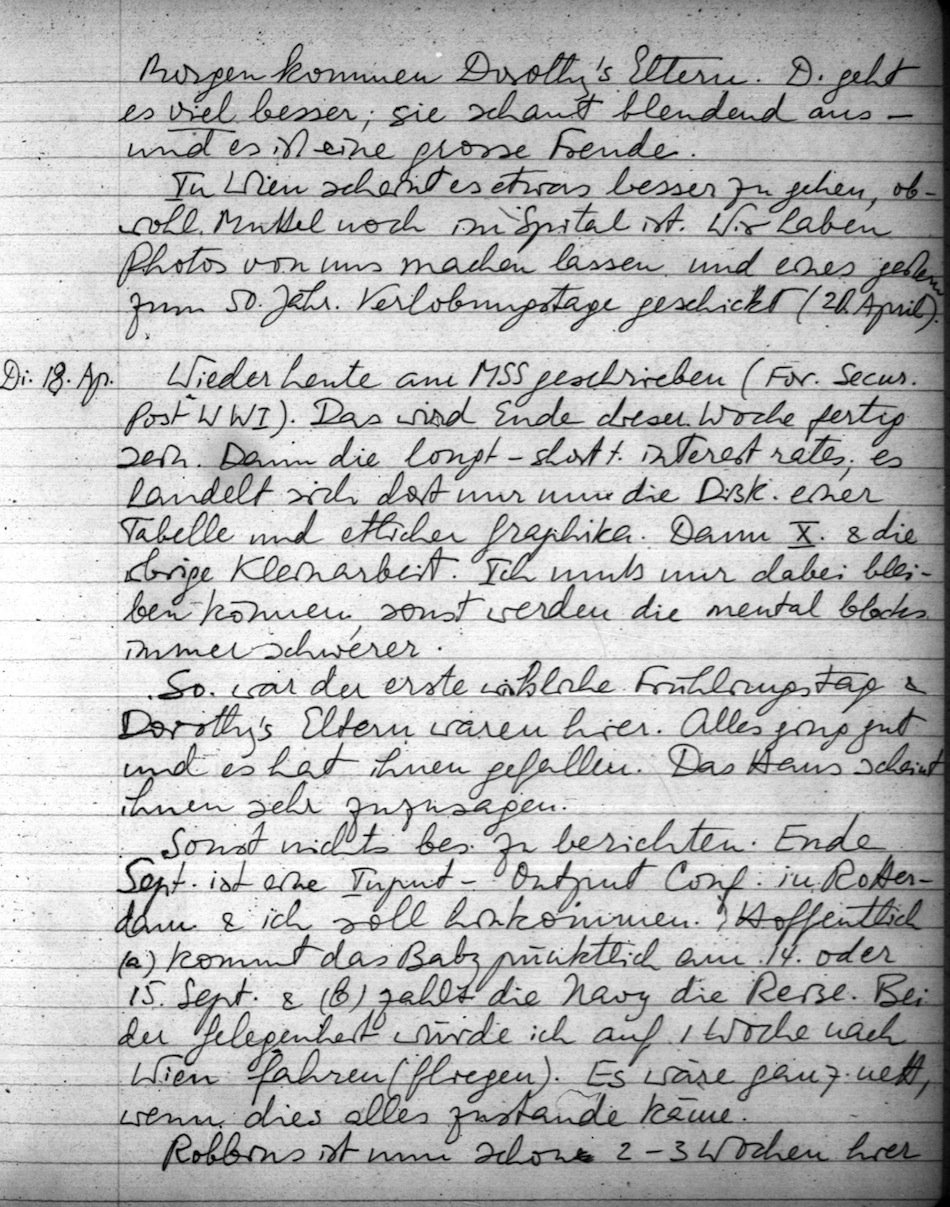 Morgen kommen Dorothy's Eltern. D. geht
es viel besser; sie schaut blendend aus –
und es ist eine grosse Freude.
In Wien scheint es etwas besser zu gehen, ob-
wohl Muttel noch im Spital ist. Wir haben
Photos von uns machen lassen und eines gestern
zum 50. Jähr. Verlobungstage geschickt (20. April).
Di. 18. Ap. Wieder heute am MSS geschrieben (For. Secur.
Post WWI). Das wird Ende dieser Woche fertig
sein. Dann die longt – short t. interest rates; es
handelt sich dort nur um die Disk. einer
Tabelle und etlicher Graphika. Dann X. & die
übrige Kleinarbeit. Ich muss nur dabei blei-
ben können, sonst werden die mental blocks
immer schwerer.
So. war der erste wirkliche Frühlingstag &
Dorothy's Eltern waren hier. Alles ging gut
und es hat ihnen gefallen. Das Haus scheint
ihnen sehr zuzusagen.
Sonst nichts bes. zu berichten. Ende
Sept. ist eine Input – Output Conf. in Rotter-
dam & ich soll hinkommen. Hoffentlich
(a) kommt das Baby pünktlich am 14. oder
15. Sept. & (b) zahlt die Navy die Reise. Bei
der Gelegenheit würde ich auf 1 Woche nach
Wien fahren (fliegen). Es wäre ganz nett,
wenn dies alles zustande käme.
Robbins ist nun schon 2 – 3 Wochen hier